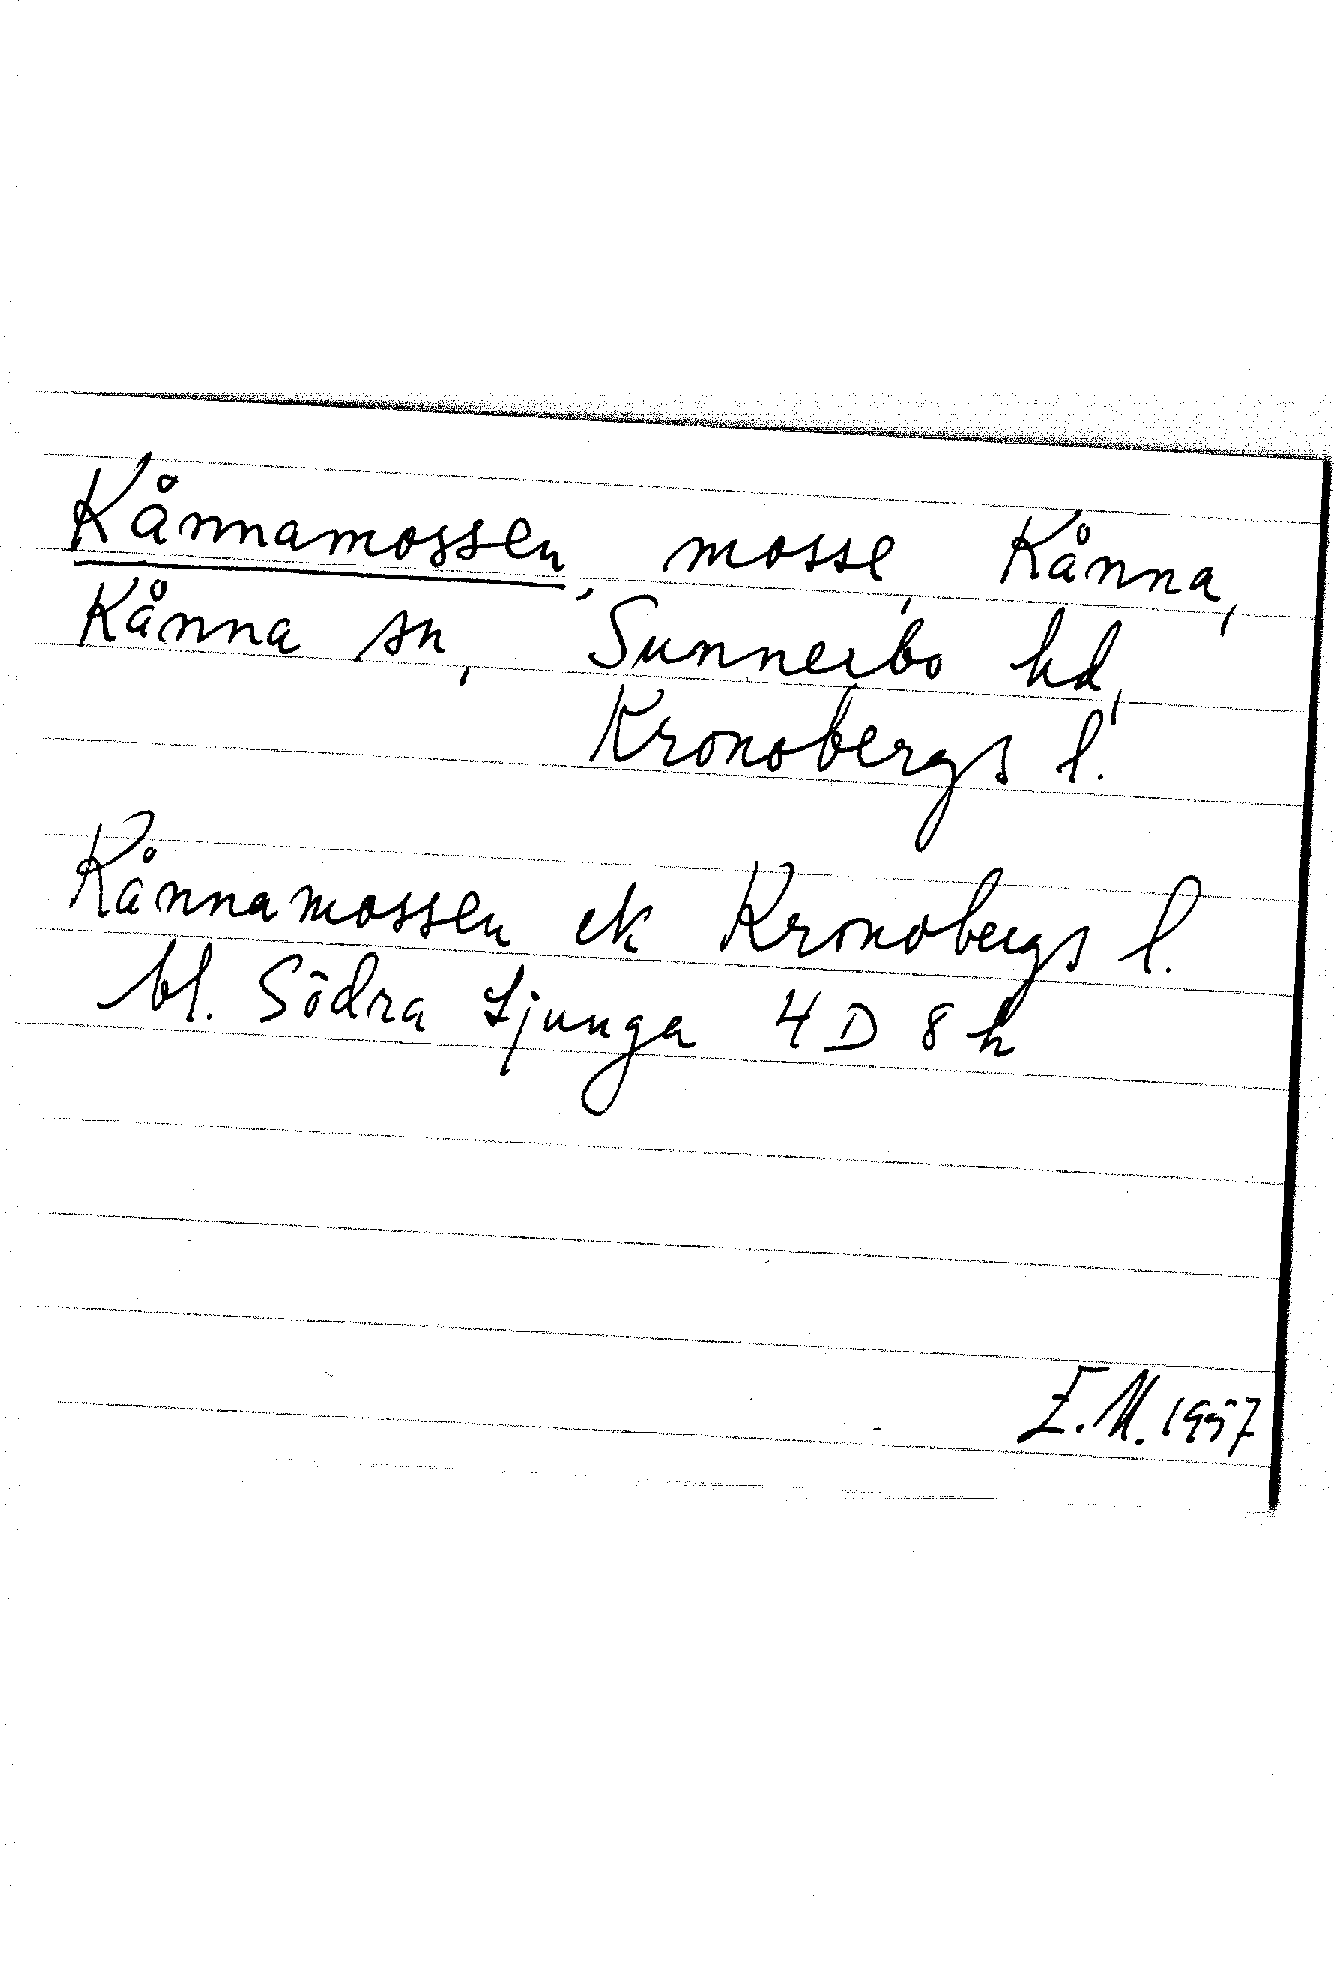 Kånnamossen, mosse, Kånna,
Kånna sn, Sunnerbo hd,
Kronobergs l.
Kånnamossen ek Kronobergs l.
bl. Södra Ljunga 4 D 8 h
E.M. 1957